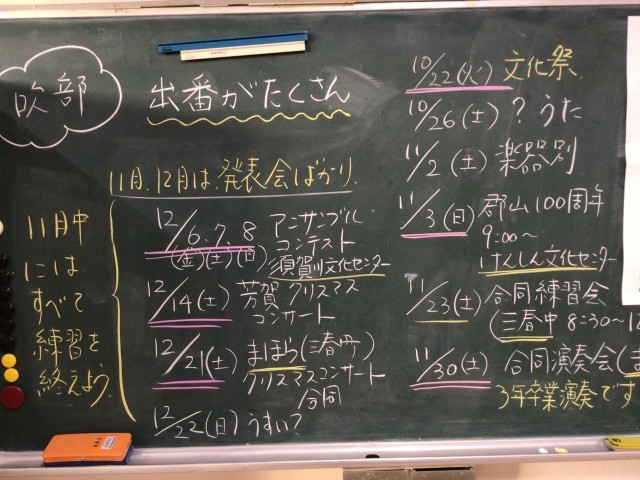 吹部
出番がたくさん
11月、12月は、発表会ばかり
11月中
には
すべて
練習を
終えよう。
12/6.7.8 アンサンブル
(金)(土)(日) コンテスト
須賀川文化センター
12/14(土) 芳賀クリスマス
コンサート
12/21(土) まほら(三春町)
クリスマスコンサート
合同
12/22(日) うすい?
10/22(火) 文化祭
10/26(土) ? うた
11/2(土) 楽器別
11/3(日) 郡山100周年
9:00~
けんしん文化センター
11/23(土) 合同練習会
(三春中 8:30~
11/30(土) 合同演奏会(
3年卒業演奏です